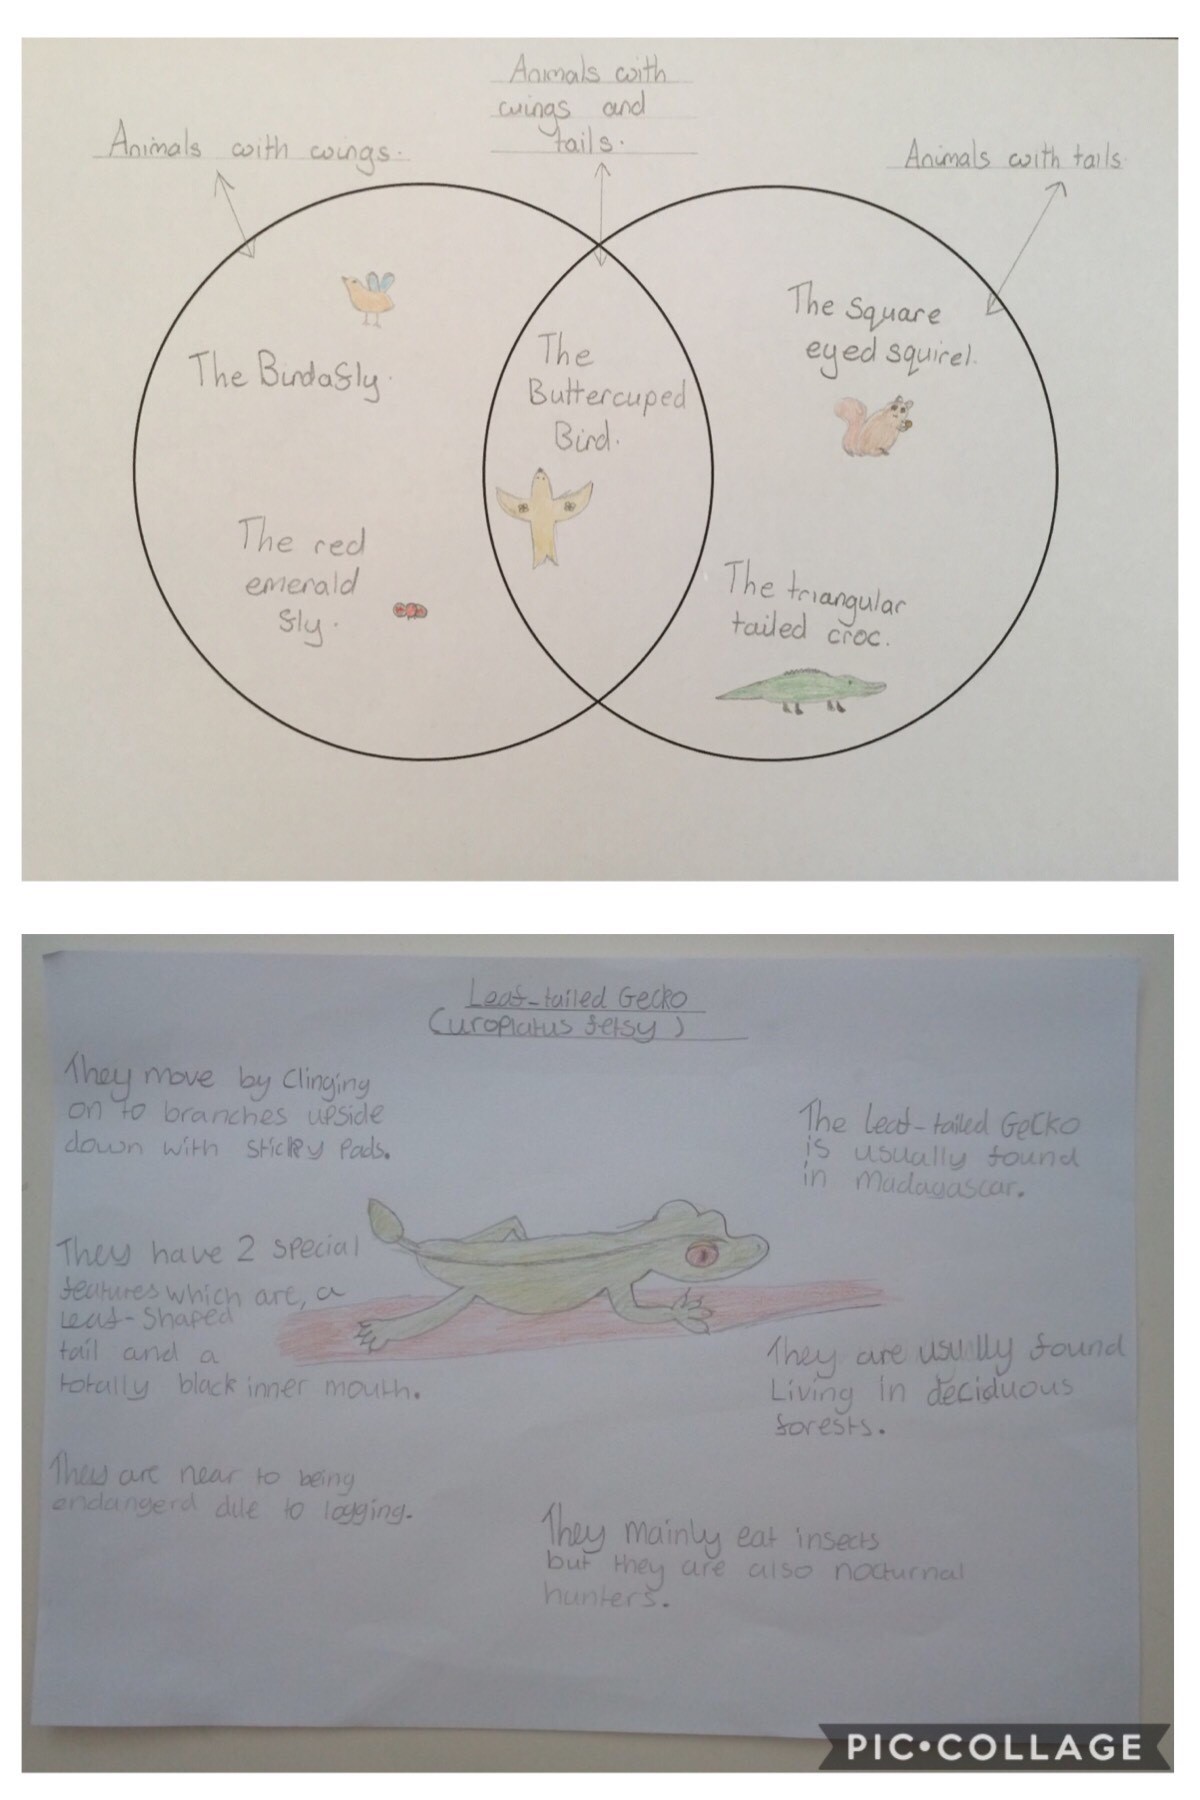 Animals with
wings and
tails.
Animals with wings.
Animals with tails.
The Birdafly.
The
Buttercuped
Bird.
The Square
eyed squirel.
The red
emerald
fly.
The triangular
tailed croc.
Leaf-tailed Gecko
(uroplatus fetsy)
They move by Clinging
on to branches upside
down with sticky Pads.
The Leaf-tailed Gecko
is usually found
in Madagascar.
They have 2 special
features which are, a
Leaf-Shaped
tail and a
totally black inner mouth.
They are usually found
Living in deciduous
forests.
They are near to being
endangerd due to logging.
They mainly eat insects
but they are also nocturnal
hunters.
PIC•COLLAGE